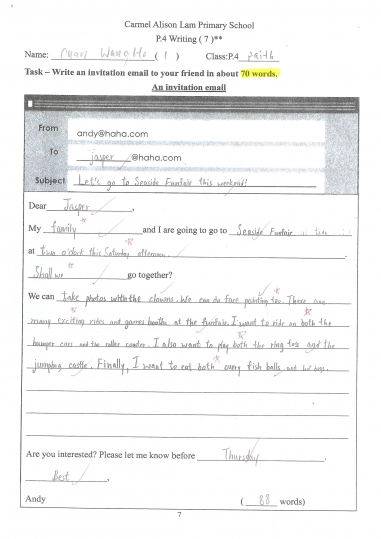 Carmel Alison Lam Primary School
P.4 Writing ( 7 )**
Name: Chan Wang Ho ( 1 ) Class:P.4 faith
Task – Write an invitation email to your friend in about 70 words.
An invitation email
From andy@haha.com
To jasper @haha.com
Subject Let's go to Seaside Funfair this weekend!
Dear Jasper ,
My family and I are going to go to Seaside Funfair
at two o'clock this Saturday afternoon .
Shall we go together?
We can take photos with the clowns. We can do face painting too. There are
many exciting rides and games booths at the funfair. I want to ride on both the
bumper cars and the roller coaster. I also want to play both the ring toss and the
jumping castle. Finally, I want to eat both curry fish balls and hot dogs.
Are you interested? Please let me know before Thursday .
Best ,
Andy ( 88 words)
7